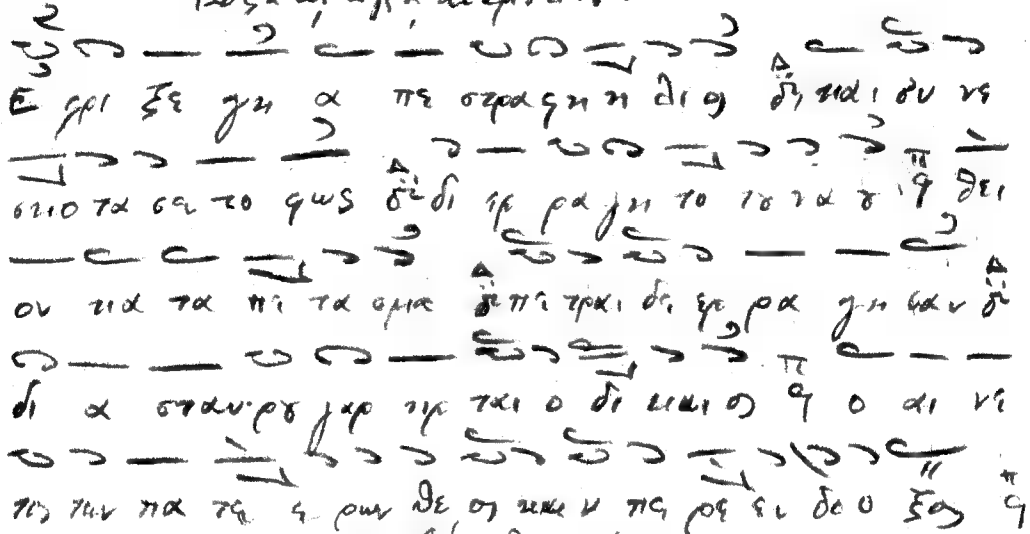 Ε φρι ξε γη α πε στρα φη η λι ος και συν νε
σκο τα σα το φως δι ερ ρα γη το τȣ να ȣ θει
ον κα τα πε τα σμα πε τραι δε ερ ρα γη σαν
δι α σταυ ρȣ γαρ ηρ ται ο δι και ος ο αι νε
τος των πα τε ε ρων θε ος και υ πε ρε εν δο ο ξος